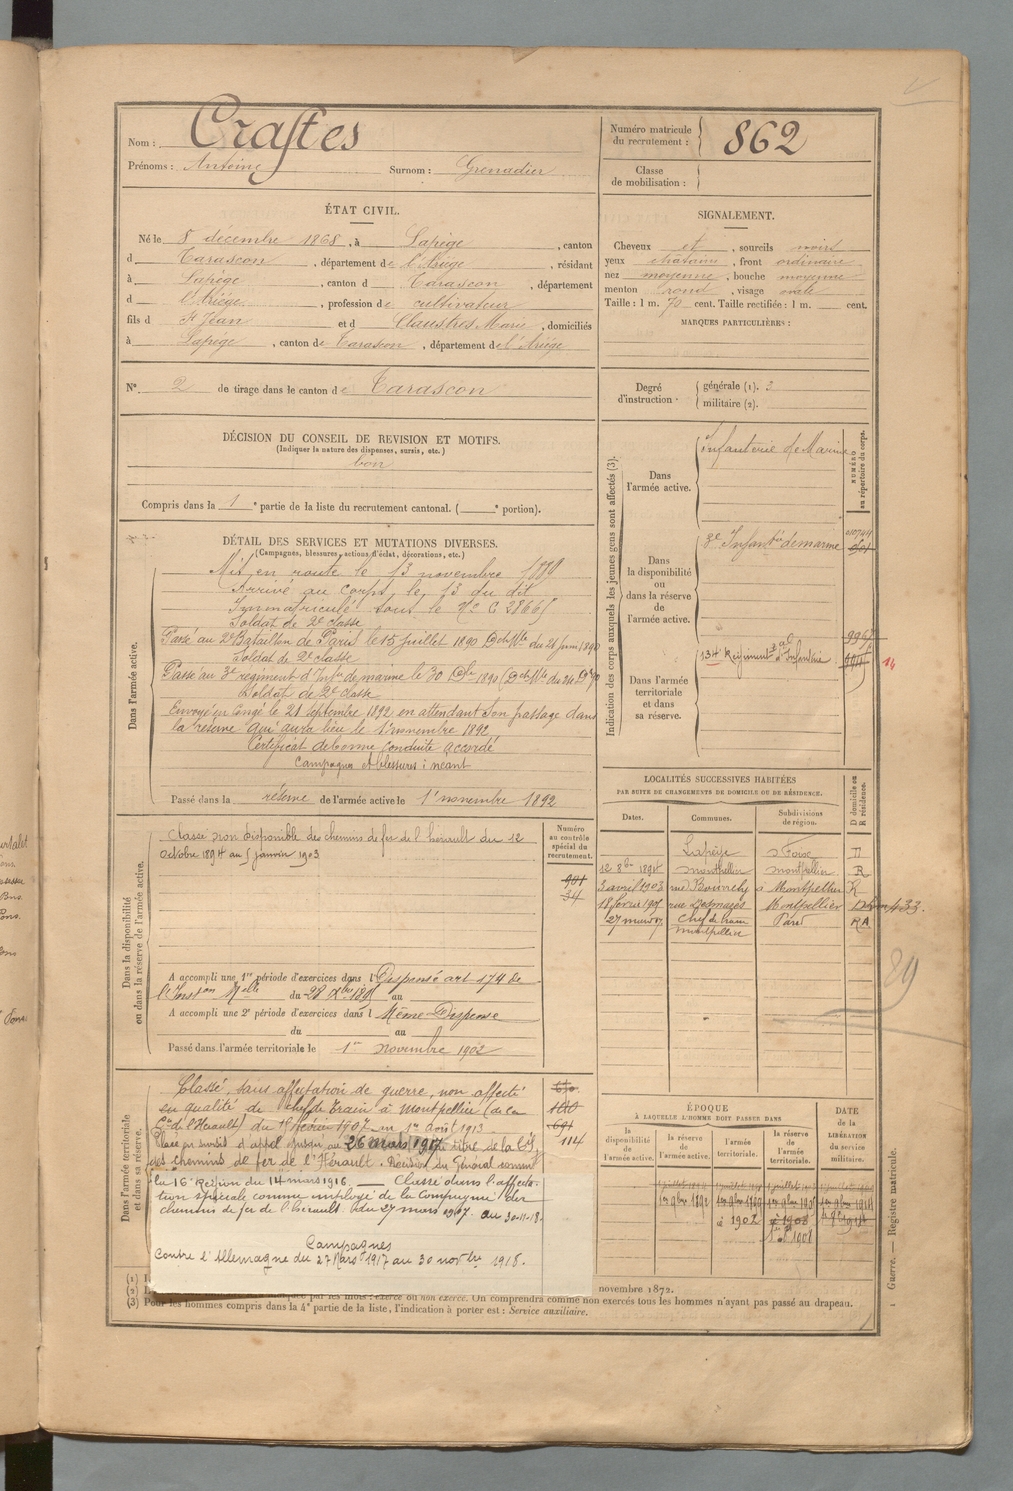 Nom : Crastes
Prénoms : Antoine Surnom : Grenadier
Numéro matricule du recrutement : 862
Classe de mobilisation :
ÉTAT CIVIL.
Né le 8 décembre 1868, à Lapège, canton
d Tarascon, département de l'Ariège, résidant
à Lapège, canton d Tarascon, département
d l'Ariège, profession de cultivateur
fils d Jean et d Claustres Marie, domiciliés
à Lapège, canton de Tarascon, département de l'Ariège
N° 2 de tirage dans le canton de Tarascon
SIGNALEMENT.
Cheveux et, sourcils noirs
yeux chatain, front ordinaire
nez moyenne, bouche moyenne
menton rond, visage ovale
Taille : 1 m. 70 cent. Taille rectifiée : 1 m. cent.
MARQUES PARTICULIÈRES :
Degré d'instruction : générale (1). 3
militaire (2).
DÉCISION DU CONSEIL DE REVISION ET MOTIFS.
(Indiquer la nature des dispenses, sursis, etc.)
bon
Compris dans la 1e partie de la liste du recrutement cantonal. ( e portion).
DÉTAIL DES SERVICES ET MUTATIONS DIVERSES.
(Campagnes, blessures, actions d'éclat, décorations, etc.)
Dans l'armée active.
Mis en route le 13 novembre 1889
Arrivé au corps le 13 du dit
Immatriculé sous le N° C 28665
Soldat de 2e classe
Passé au 2e Bataillon de Paris le 15 juillet 1890 Dch Mlle du 21 juin 1890
Soldat de 2e classe
Passé au 3e régiment d'Infie de marine le 30 Dbre 1890
Soldat de 2e classe
Envoyé en congé le 21 septembre 1892 en attendant son passage dans
la réserve qui aura lieu le 1er novembre 1892
Certificat de bonne conduite accordé
Campagnes et blessures : néant
Passé dans la réserve de l'armée active le 1er novembre 1892
Indication des corps auxquels les jeunes gens sont affectés (3).
NUMÉRO au répertoire du corps.
Dans l'armée active.
Infanterie de Marine
Dans la disponibilité ou dans la réserve de l'armée active.
3e Infantie de marine
Dans l'armée territoriale et dans sa réserve.
134 Régiment Tal d'Infanterie
14
Dans la disponibilité ou dans la réserve de l'armée active.
Classé non disponible des chemins de fer de l'hérault du 12
octobre 1894 au 5 janvier 1903
Numéro au contrôle spécial du recrutement.
901
34
A accompli une 1re période d'exercices dans l Dispensé art. 174 de
l'Inston Mlle du 28 Xbre 1895 au
A accompli une 2e période d'exercices dans l Même Dispense
du au
Passé dans l'armée territoriale le 1er novembre 1902
LOCALITÉS SUCCESSIVES HABITÉES
PAR SUITE DE CHANGEMENTS DE DOMICILE OU DE RÉSIDENCE.
Dates. Communes. Subdivisions de région. D domicile ou R résidence.
Lapège Foix D
12 8bre 1894 montpellier montpellier R
3 avril 1903 Montpellier R
18 février 1905 rue Desmazes Montpellier
27 mars 07 chef de train montpellier RA
89
Dans l'armée territoriale et dans sa réserve.
Classé, sans affectation de guerre, non affecté
en qualité de chef de train à Montpellier (de la
Cie de l'Hérault) du 18 février 1907 au 1er août 1913
Placé en sursis d'appel jusqu'au 26 mars 1917 au titre de la Cie
des chemins de fer de l'Hérault. Décision du Général commt
la 16e Région du 14 mars 1916. — Classé dans l'affecta-
tion spéciale comme employé de la Compagnie des
chemins de fer de l'hérault du 27 mars 1917 au 30-11-18.
Campagnes
Contre l'Allemagne du 27 Mars 1917 au 30 novbre 1918.
114
ÉPOQUE
À LAQUELLE L'HOMME DOIT PASSER DANS
la disponibilité de l'armée active. la réserve de l'armée active. l'armée territoriale. la réserve de l'armée territoriale. DATE de la LIBÉRATION du service militaire.
1er 9bre 1892
1902
1908
novembre 1872.
On comprendra comme non exercés tous les hommes n'ayant pas passé au drapeau.
(3) Pour les hommes compris dans la 4e partie de la liste, l'indication à porter est : Service auxiliaire.
Guerre. — Registre matricule.